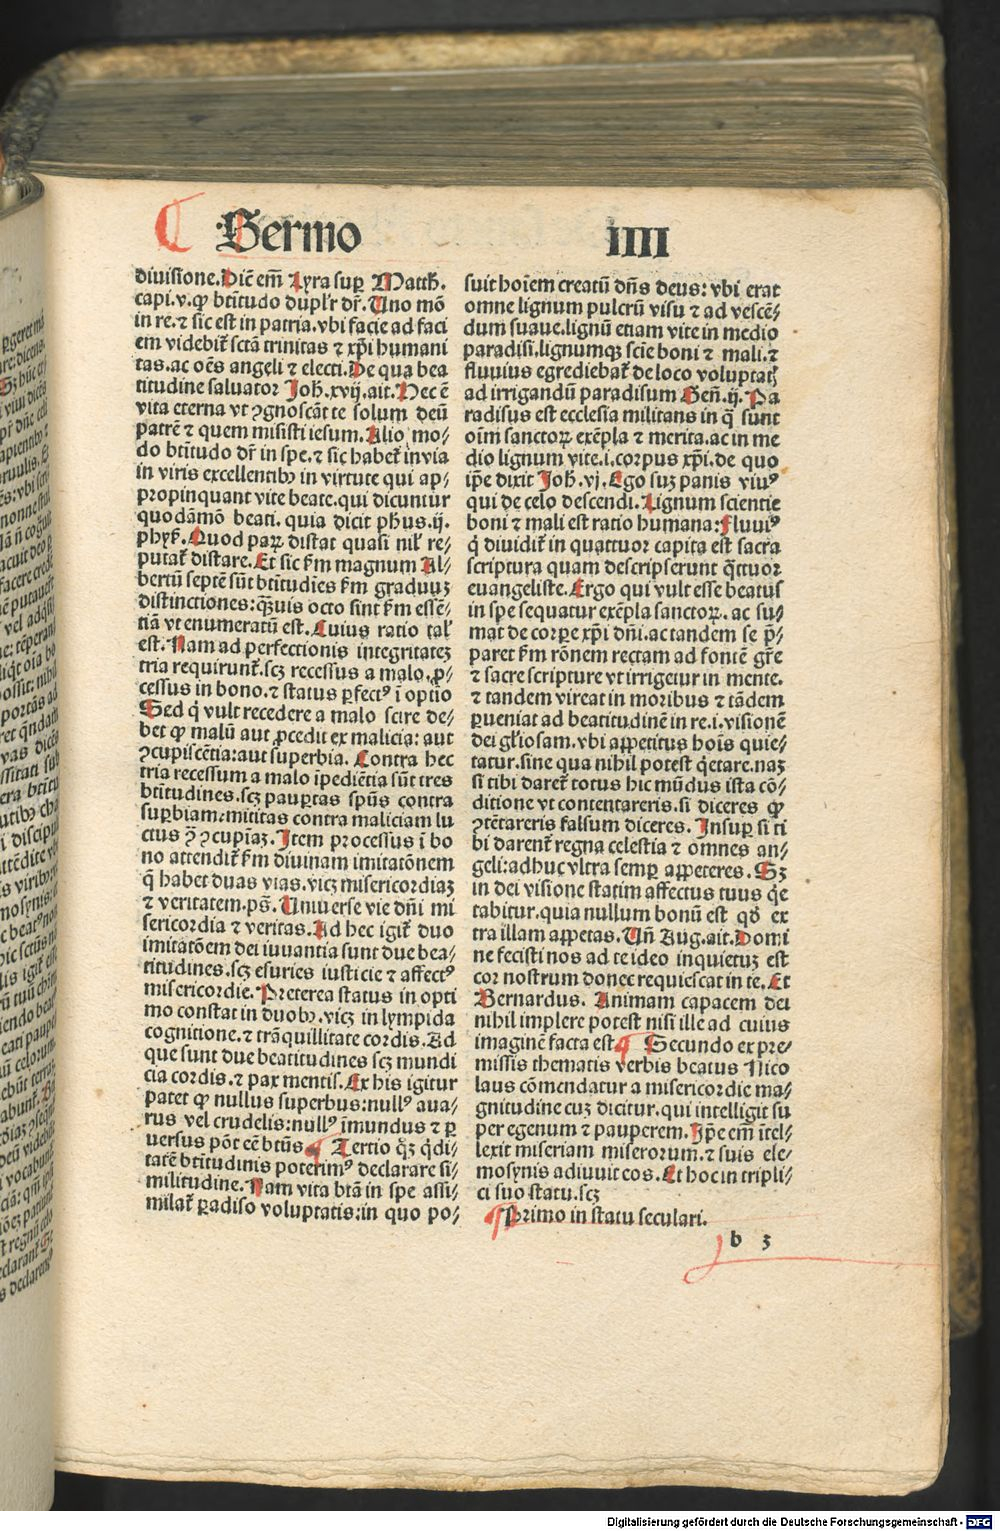 Sermo IIII
diuisione. Dic̄ em̄ Lyra sup̱ Matth̄.
capi. v. ꝙ btītudo dupl'r dr̄. Uno mō
in re. ⁊ sic est in patria. vbi facie ad faci
em videbit̄ sctā trinitas ⁊ xp̄i humani
tas. ac oēs angeli ⁊ electi. De qua bea
titudine saluator Joh̄. xvij. ait. Hec ē
vita eterna vt ꝯgnoscāt te solum deū
patrē ⁊ quem misisti iesum. Alio mo⸗
do btītudo dr̄ in spe. ⁊ sic habet̄ in via
in viris excellentibꝫ in virtute qui ap⸗
propinquant vite beate. qui dicuntur
quodāmō beati. quia dicit ph̄us. ij.
phyẜ. Quod paꝝ distat quasi nil̄ re⸗
putat̄ distare. Et sic ẜm magnum Al⸗
bertū septē sūt btītudīes ẜm graduuꝫ
distinctiones: qꝫuis octo sint ẜm essē⸗
tiā vt enumeratū est. Cuius ratio tal'
est. Nam ad perfectionis integritateꝫ
tria requirunt̄. scꝫ recessus a malo. ꝓ⸗
cessus in bono. ⁊ status ꝑfectꝰ ī optīo
Sed q̇ vult recedere a malo scire de⸗
bet ꝙ malū aut ꝓcedit ex malicia: aut
ꝯcupiscētia: aut superbia. Contra hec
tria recessum a malo īpediētia sūt tres
btītudines. scꝫ pauꝑtas spūs contra
suꝑbiam: mititas contra maliciam lu
ctus ꝯ̄ ꝯcupīaꝫ. Item processus ī bo
no attendit̄ ẜm diuinam imitatōnem
q̄ habet duas vias. vicꝫ misericordiaꝫ
⁊ veritatem. pš. Uniuerse vie dn̄i mi
sericordia ⁊ veritas. Ad hec igit̄ duo
imitatōem dei iuuantia sunt due bea⸗
titudines. scꝫ esuries iusticie ⁊ affectꝰ
misericordie. Preterea status in opti
mo constat in duobꝫ. vicꝫ in lympida
cognitione. ⁊ trāquillitate cordis. Ad
que sunt due beatitudines scꝫ mundi
cia cordis. ⁊ pax mentis. Ex his igitur
patet ꝙ nullus superbus: nullꝰ aua⸗
rus vel crudelis: nullꝰ īmundus ⁊ ꝑ
uersus pōt eē btūs. Tertio qꝫ q̇di⸗
tatē btītudinis poterimꝰ declarare si⸗
militudine. Nam vita btā in spe assi⸗
milat̄ ꝑadiso voluptatis: in quo po⸗
suit hoīem creatū dn̄s deus: vbi erat
omne lignum pulcrū visu ⁊ ad vescē⸗
dum suaue. lignū etiam vite in medio
paradisi. lignumqꝫ scīe boni ⁊ mali. ⁊
fluuius egrediebat̄ de loco voluptatꝭ
ad irrigandū paradisum Geñ. ij. Pa
radisus est ecclesia militans in q̄ sunt
oīm sanctoꝝ exēpla ⁊ merita. ac in me
dio lignum vite. i. corpus xp̄i. de quo
ip̄e dixit Joh̄. vj. Ego suꝫ panis viuꝰ
qui de celo descendi. Lignum scientie
boni ⁊ mali est ratio humana: Fluuiꝰ
q̇ diuidit̄ in quattuor capita est sacra
scriptura quam descripserunt q̇ttuor
euangeliste. Ergo qui vult esse beatus
in spe sequatur exēpla sanctoꝝ. ac su⸗
mat de corpe xp̄i dn̄i. ac tandem se p̄⸗
paret ẜm rōnem rectam ad fontē gr̄e
⁊ sacre scripture vt irrigetur in mente.
⁊ tandem vireat in moribus ⁊ tādem
ꝑueniat ad beatitudinē in re. i. visionē
dei gl'iosam. vbi aꝑpetitus hoīs quie⸗
tatur. sine qua nihil potest q̇etare. naꝫ
si tibi daret̄ totus hic mūdus ista cō⸗
ditione vt contentareris. si diceres ꝙ
ꝯtētareris falsum diceres. Insuꝑ si ti
bi darent̄ regna celestia ⁊ omnes an⸗
geli: adhuc vltra semꝑ appeteres. Sꝫ
in dei visione statim affectus tuus q̇e
tabitur. quia nullum bonū est qd̄ ex
tra illam appetas. Uñ Aug. ait. Domi
ne fecisti nos ad te ideo inquietuꝫ est
cor nostrum donec requiescat in te. Et
Bernardus. Animam capacem dei
nihil implere potest nisi ille ad cuius
imaginē facta est. Secundo ex pre⸗
missis thematis verbis beatus Nico
laus cōmendatur a misericordie ma⸗
gnitudine cuꝫ dicitur. qui intelligit su
per egenum ⁊ pauperem. Ip̄e em̄ ītel⸗
lexit miseriam miserorum. ⁊ suis ele⸗
mosynis adiuuit eos. Et hoc in tripli⸗
ci suo statu. scꝫ
Primo in statu seculari.
b 3
Digitalisierung gefördert durch die Deutsche Forschungsgemeinschaft - DFG